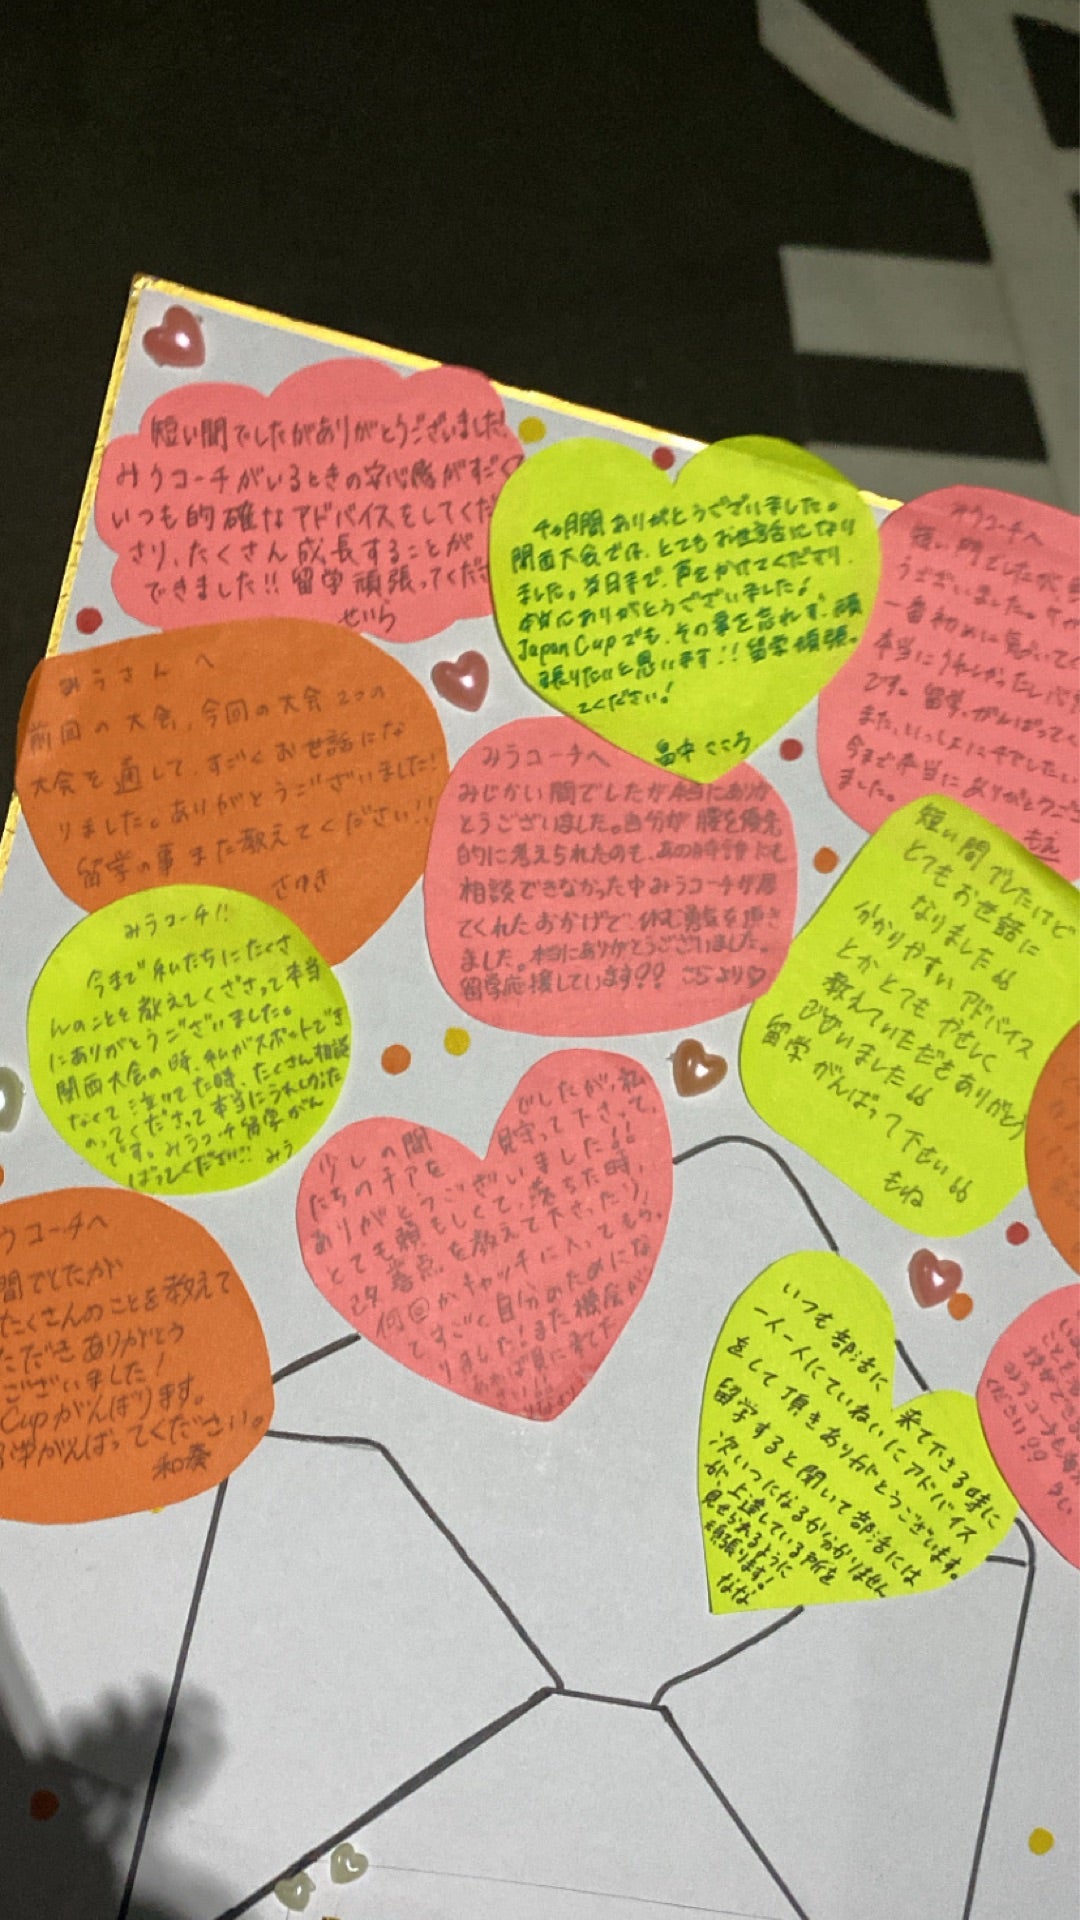 短い間でしたがありがとうございました!
みうコーチがいるときの安心感がすごく
いつも的確なアドバイスをしてくだ
さり、たくさん成長することが
できました!! 留学頑張ってくださ
せいら
4ヶ月間ありがとうございました。
関西大会では、とてもお世話になり
ました。当日まで、声をかけてくださり、
本当にありがとうございました!
Japan Cupでも、その事を忘れず、頑
張りたいと思います!! 留学頑張っ
てください!
畠中 こころ
みうコーチへ
短い間でしたが、
うございました。
一番初めに覚えてく
本当にうれしかったし
です。留学、がんばってく
また、いっしょに
今まで本当にありがとうご
ました。
もえ
みうさん へ
前回の大会、今回の大会2つの
大会を通して、すごくお世話にな
りました。ありがとうございました!
留学の事また教えてください!!
さゆき
みうコーチへ
みじかい間でしたが本当にありが
とうございました。自分が腰を優先
的に考えられたのも、あの時誰にも
相談できなかった中みうコーチが居
てくれたおかげで、休む勇気を頂き
ました。本当にありがとうございました。
留学応援しています?? こらより♡
短い間でしたけど
とてもお世話に
なりました
分かりやすいアドバイス
とかとてもやさしく
教えていただきありがとう
ございました
留学がんばって下さい
もね
みうコーチ!!
今まで私たちにたくさ
んのことを教えてくださって本当
にありがとうございました。
関西大会の時、私がスポットでき
なくて泣いてた時、たくさん相談
のってくださって本当にうれしかった
です。みうコーチ留学がん
ばってください!! みう
少しの間でしたが、私
たちのチアを見守って下さって、
ありがとうございました!!
とても頼もしくて、落ちた時、
改善点を教えて下さったり、
何回かキャッチに入ってもら
てすごく自分のためにな
りました!また機会が
あれば見に来て下
うコーチへ
間でしたが
たくさんのことを教えて
ただきありがとう
ございました!
Cupがんばります。
がんばってください。
和奏
いつも部活に来て下さる時に
一人一人にていねいにアドバイス
をして頂きありがとうございます。
留学すると聞いて部活には
次いつになるか分かりません
が、上達している所を
見せられるように
頑張ります!
なな